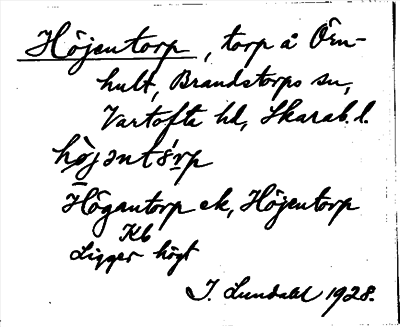 Höjentorp, torp å Örn-
hult, Brandstorps sn,
Vartofta hd, Skarab. l.
hö̀jəntǻrp
Högantorp ek, Höjentorp
Kb
Ligger högt
I. Lundahl 1928.